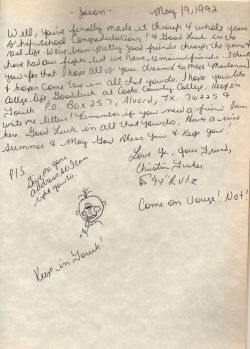 - Jason -
May 19, 1992
Well, you've finally made it through 4 whole years
of high school. Congratulations! & Good Luck in the
real life. We've been pretty good friends through the years &
have had our fights but we have remained friends. I thank
you for that. I hope all of your dreams to meet Madonna
& hopes come true in all that you do. I hope you like
college life. Good luck at Cooke County College. Keep in
Touch. P.O. Box 257, Alvord, TX. 76225 &
write me letters! Remember if you need a friend I am
here. Good Luck in all that you do. Have a nice
Summer & May God Bless You & Keep you.
Love Ya, Your Friend,
Christin Tucker
"94" Rulz
P/S
Give me your
address so I can
write you to.
Come on Over! Not!
Keep in Touch!